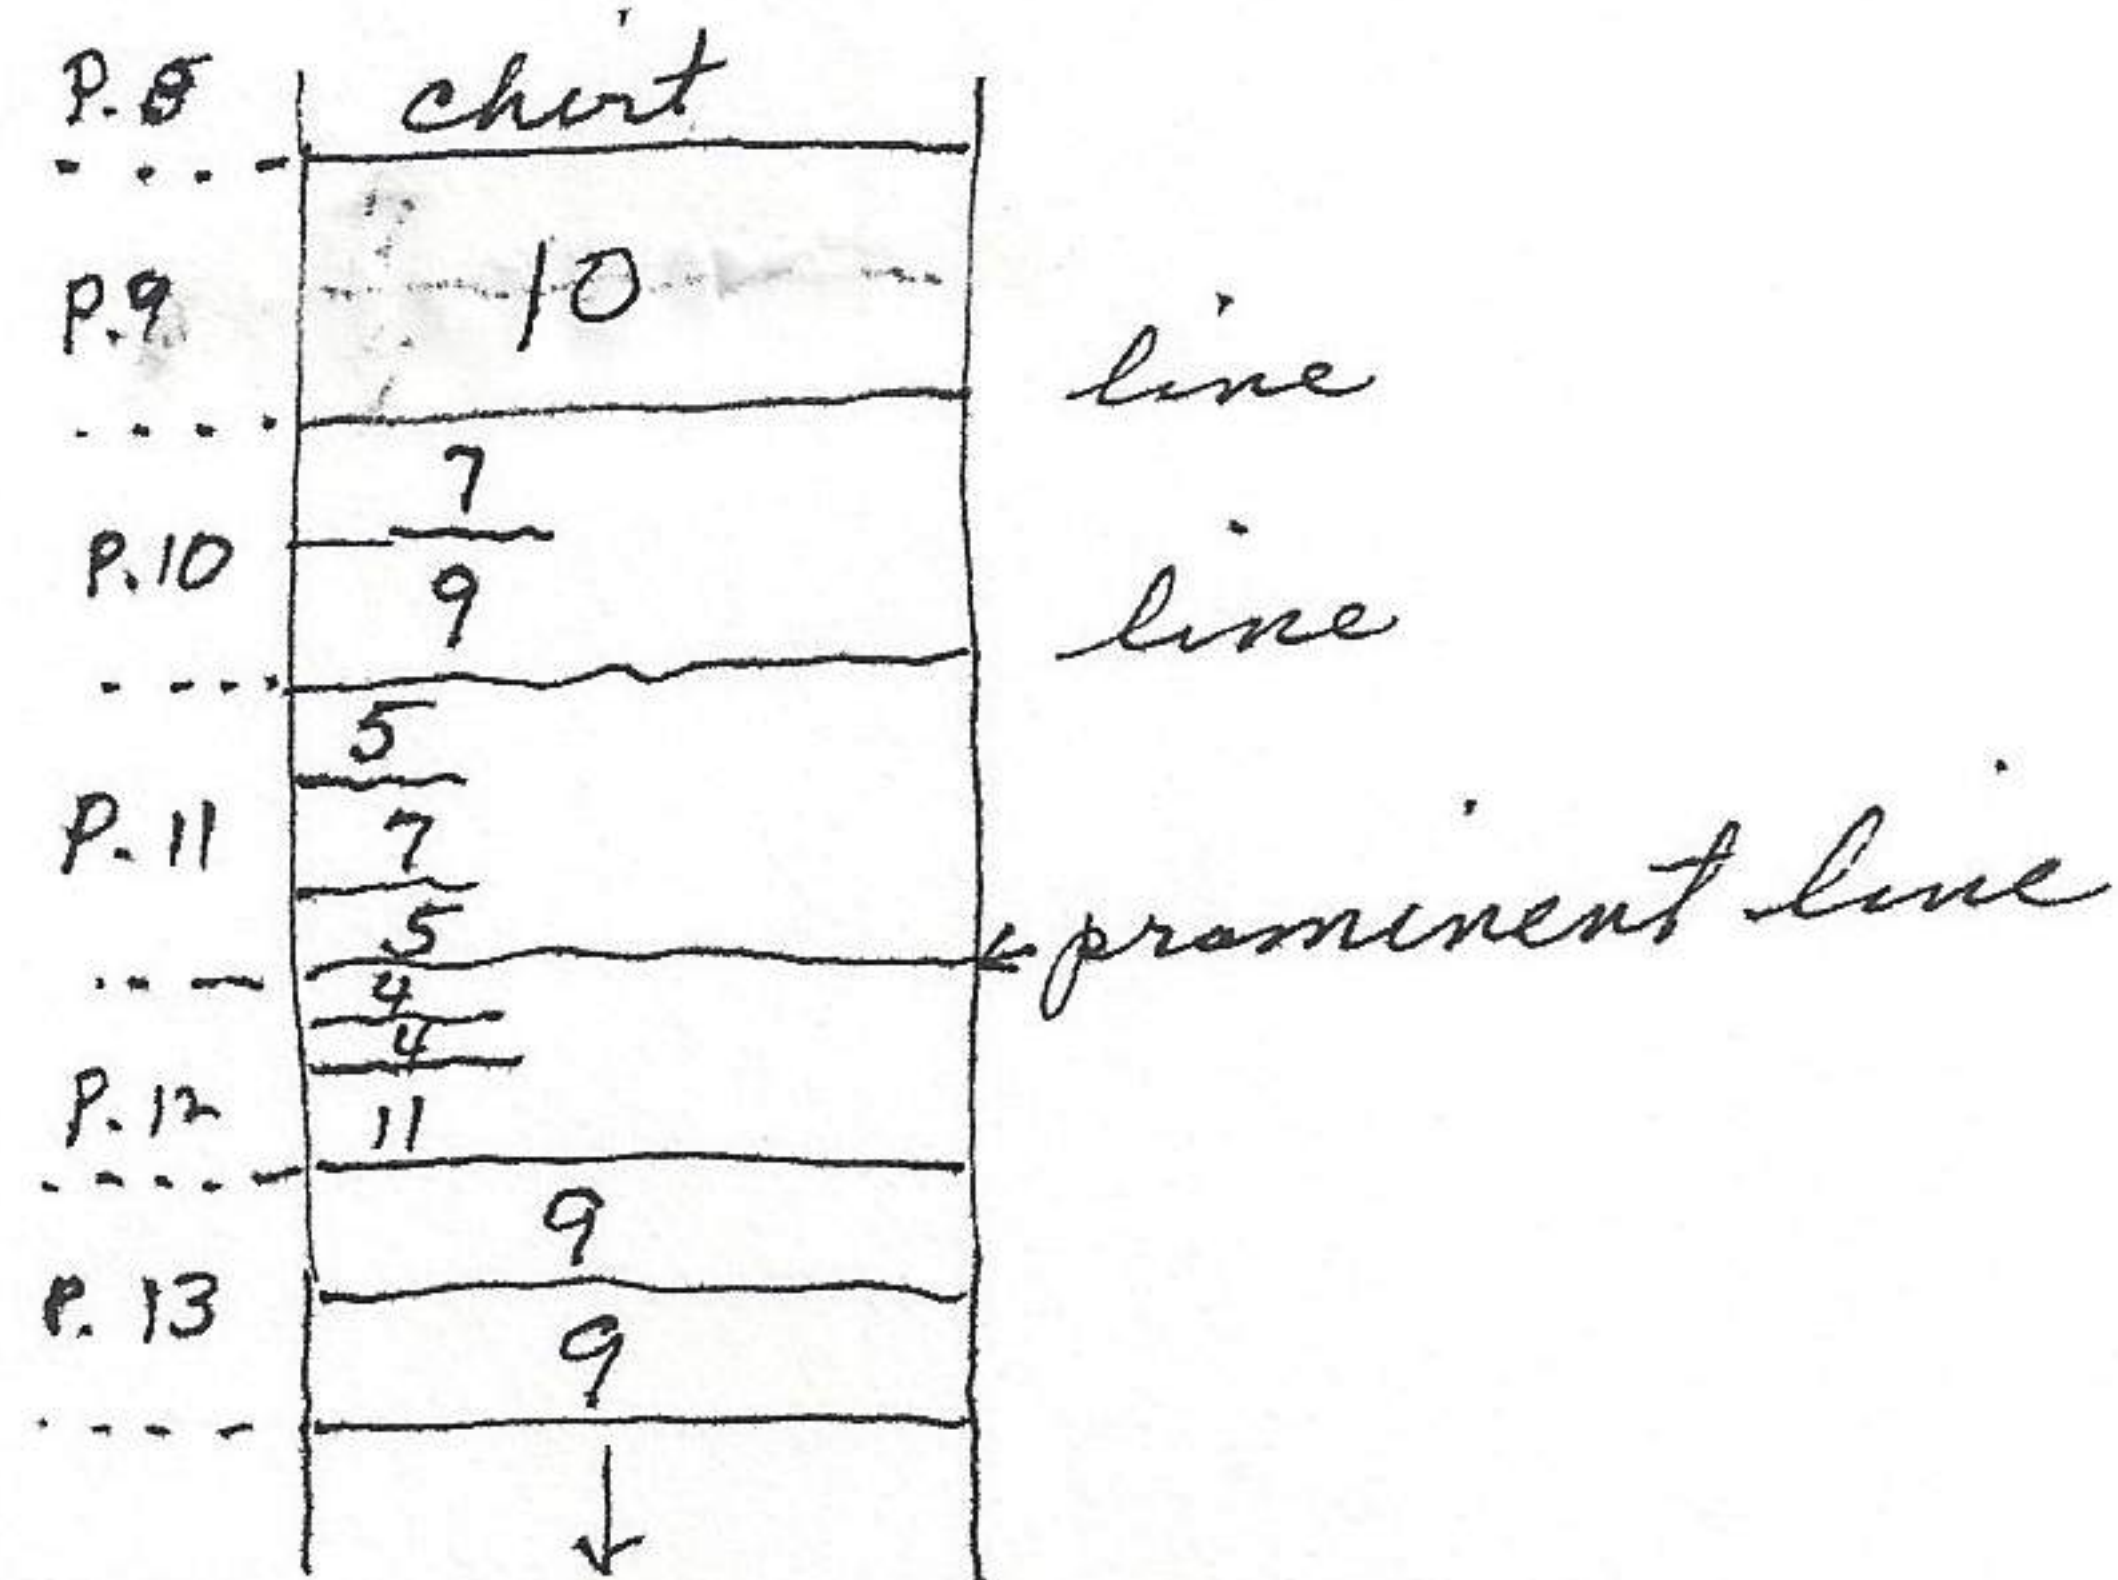 P. 8 chert
P. 9 10
line
7
P. 10
9
line
5
P. 11 7
5
← prominent line
4
4
P. 12 11
9
P. 13
9